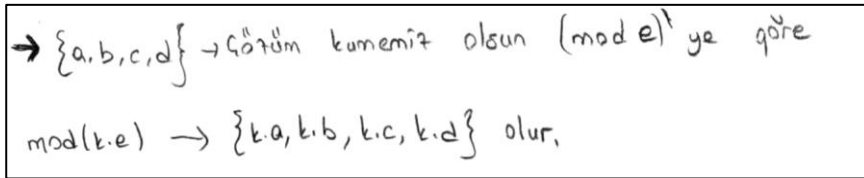 → {a,b,c,d} → Çözüm kümemiz olsun (mod e)' ye göre
mod(k.e) → {k.a, k.b, k.c, k.d} olur.